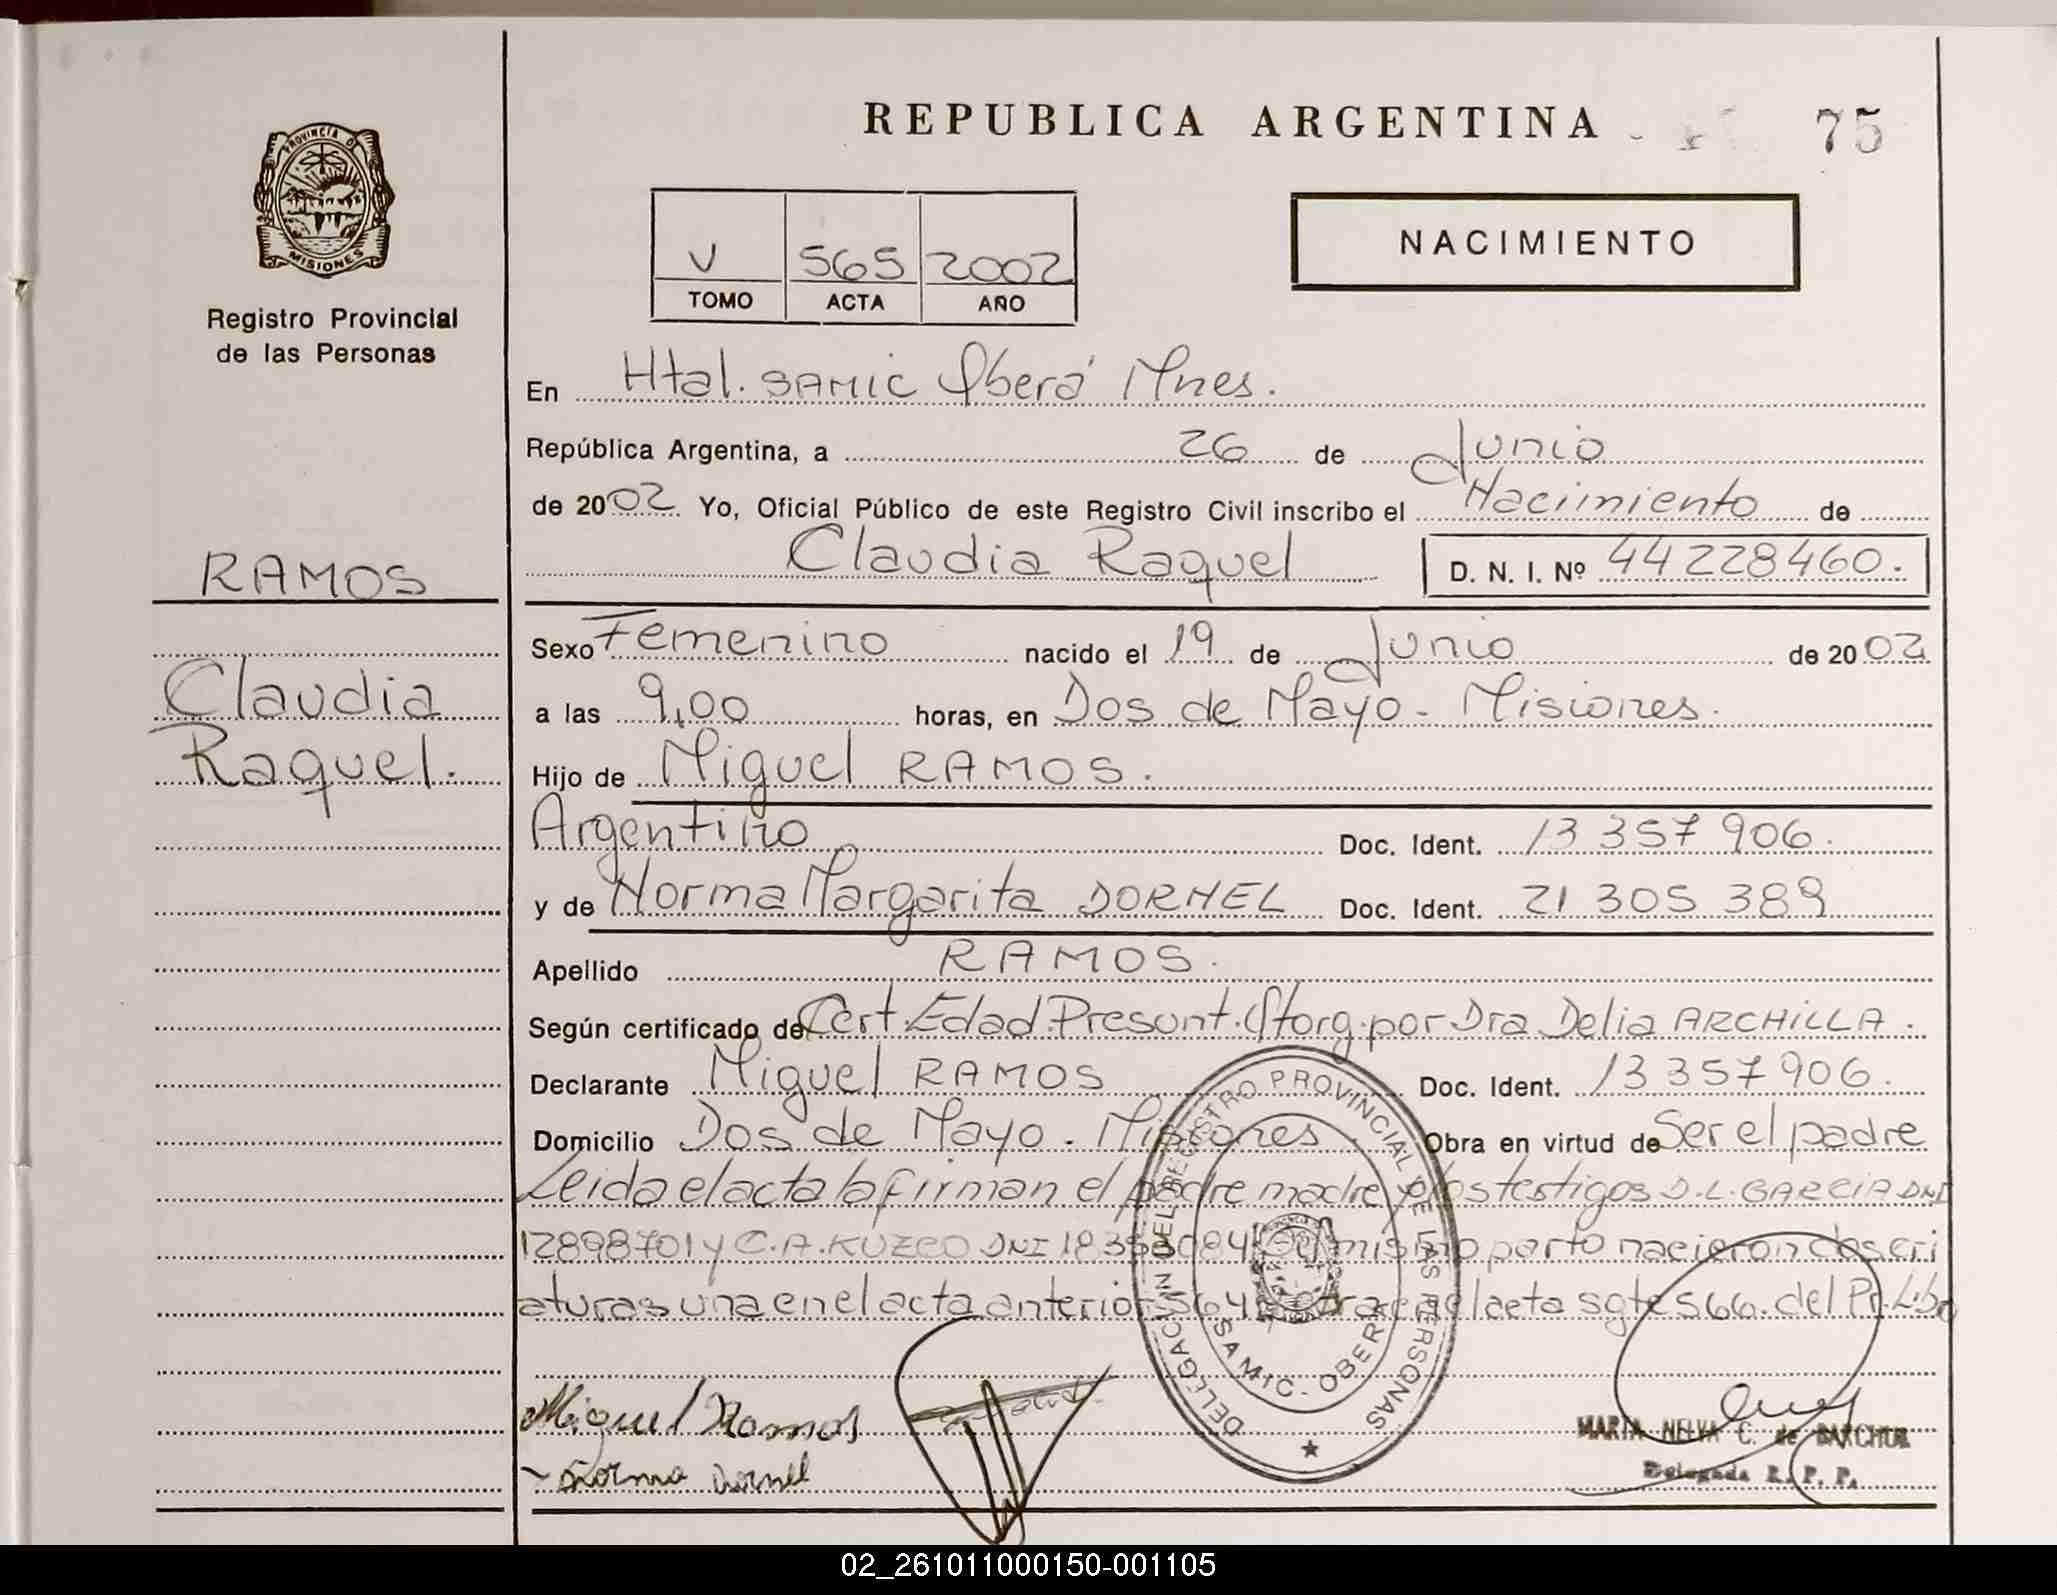 REPUBLICA ARGENTINA
75
PROVINCIA DE
MISIONES
Registro Provincial
de las Personas
V 565 2002
TOMO ACTA AÑO
NACIMIENTO
En Htal. SAMIC Oberá Mnes.
República Argentina, a 26 de Junio
de 2002 Yo, Oficial Público de este Registro Civil inscribo el Nacimiento de
Claudia Raquel D. N. I. Nº 44228460.
RAMOS
Claudia
Raquel.
Sexo Femenino nacido el 19 de Junio de 2002
a las 9,00 horas, en Dos de Mayo - Misiones.
Hijo de Miguel RAMOS.
Argentino Doc. Ident. 13 357 906.
y de Norma Margarita DORNEL Doc. Ident. 21 305 389
Apellido RAMOS.
Según certificado de Cert. Edad. Presunt. Otorg. por Dra Delia ARCHILLA.
Declarante Miguel RAMOS Doc. Ident. 13 357 906.
Domicilio Dos de Mayo. Misiones Obra en virtud de Ser el padre
Leida el acta la firman el padre madre y los testigos D.L. GARCIA DNI
12898701 y C.A. KUZCO DNI mismo parto nacieron dos cri
aturas una en el acta anterior 564 otra en el acta sgte 566. del Pr. Libo
DELEGACION DEL REGISTRO PROVINCIAL DE LAS PERSONAS
SAMIC - OBERA
Miguel Ramos
Norma Dornel
MARIA NELVA C. de BARCHUK
Delegada R. P. P.
02_261011000150-001105